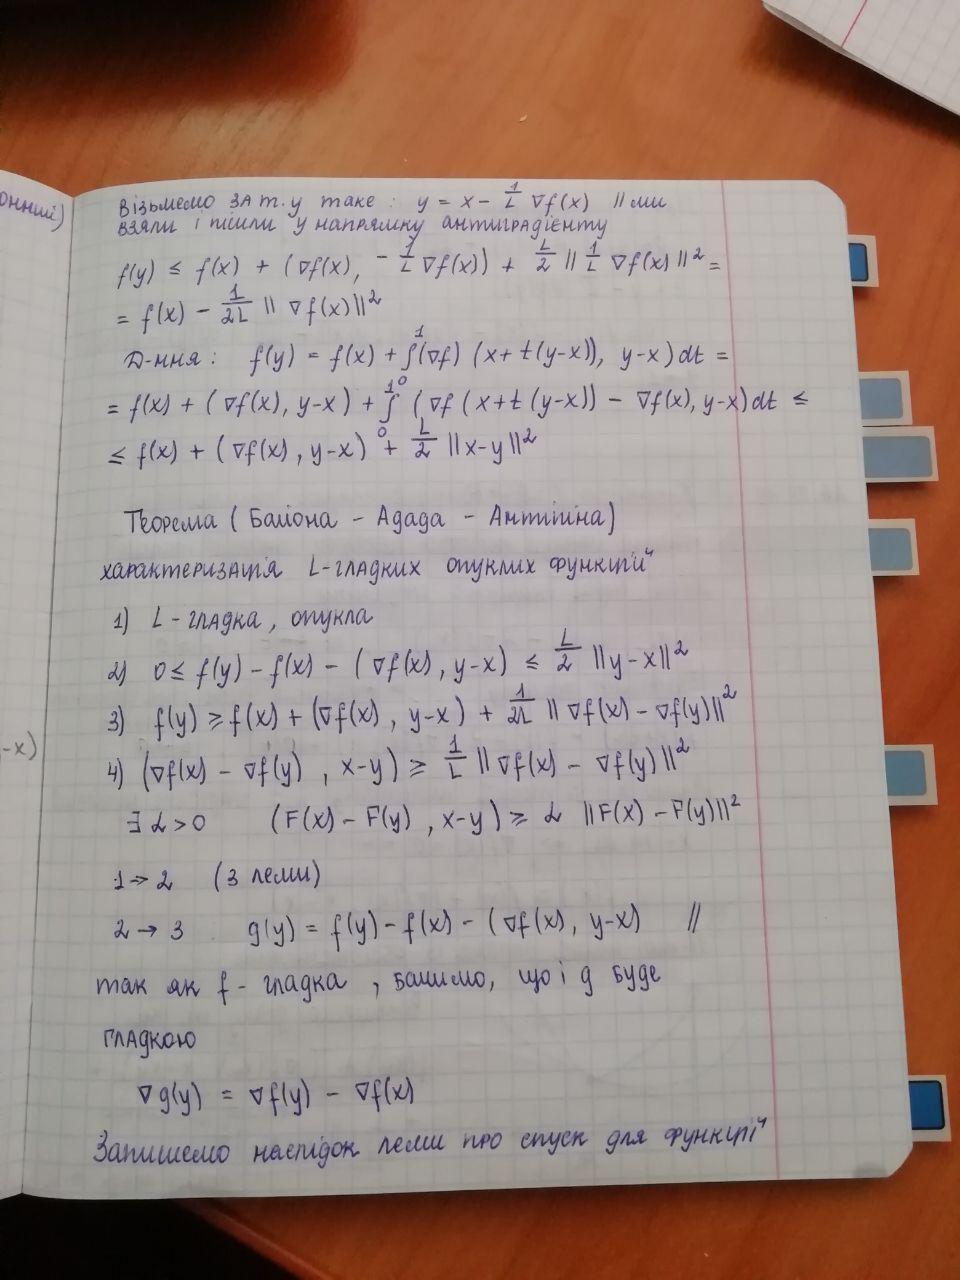 онний)
Візьмемо за т. у таке : y = x - 1/L ∇f(x) || ми
взяли і пішли у напрямку антиградієнту
f(y) ≤ f(x) + (∇f(x), - 1/L ∇f(x)) + L/2 || 1/L ∇f(x) ||² =
= f(x) - 1/2L || ∇f(x)||²
Д-ння : f(y) = f(x) + ∫₀¹(∇f) (x+t(y-x)), y-x) dt =
= f(x) + (∇f(x), y-x) + ∫₀¹ (∇f (x+t (y-x)) - ∇f(x), y-x)dt ≤
≤ f(x) + (∇f(x), y-x) + L/2 ||x-y||²
Теорема ( Байона - Адада - Антпіна)
характеризація L-гладких опуклих функцій
1) L - гладка, опукла
2) 0 ≤ f(y) - f(x) - (∇f(x), y-x) ≤ L/2 ||y-x||²
3) f(y) ≥ f(x) + (∇f(x), y-x) + 1/2L || ∇f(x) - ∇f(y)||²
-x)
4) (∇f(x) - ∇f(y), x-y) ≥ 1/L || ∇f(x) - ∇f(y)||²
∃ α > 0 (F(x) - F(y), x-y) ≥ α ||F(x) - F(y)||²
1 → 2 (з леми)
2 → 3 g(y) = f(y) - f(x) - (∇f(x), y-x) //
так як f - гладка, бачимо, що і g буде
гладкою
∇g(y) = ∇f(y) - ∇f(x)
Запишемо наслідок леми про спуск для функції